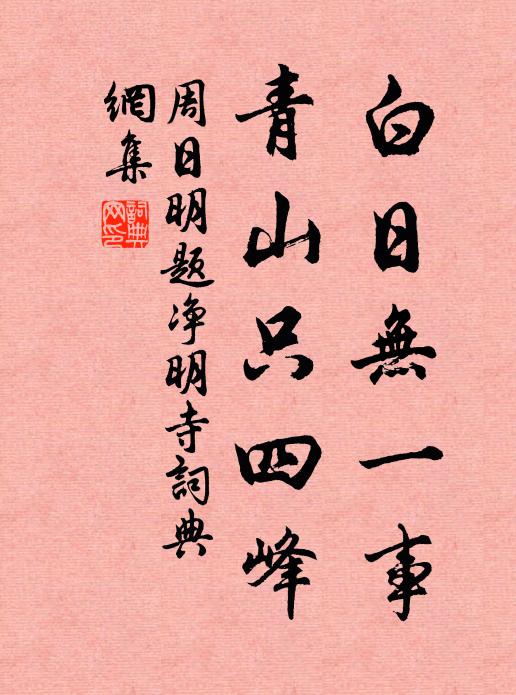 白日無一事
青山只四峰
周日明题净明寺詞典
網集
詞典
网印